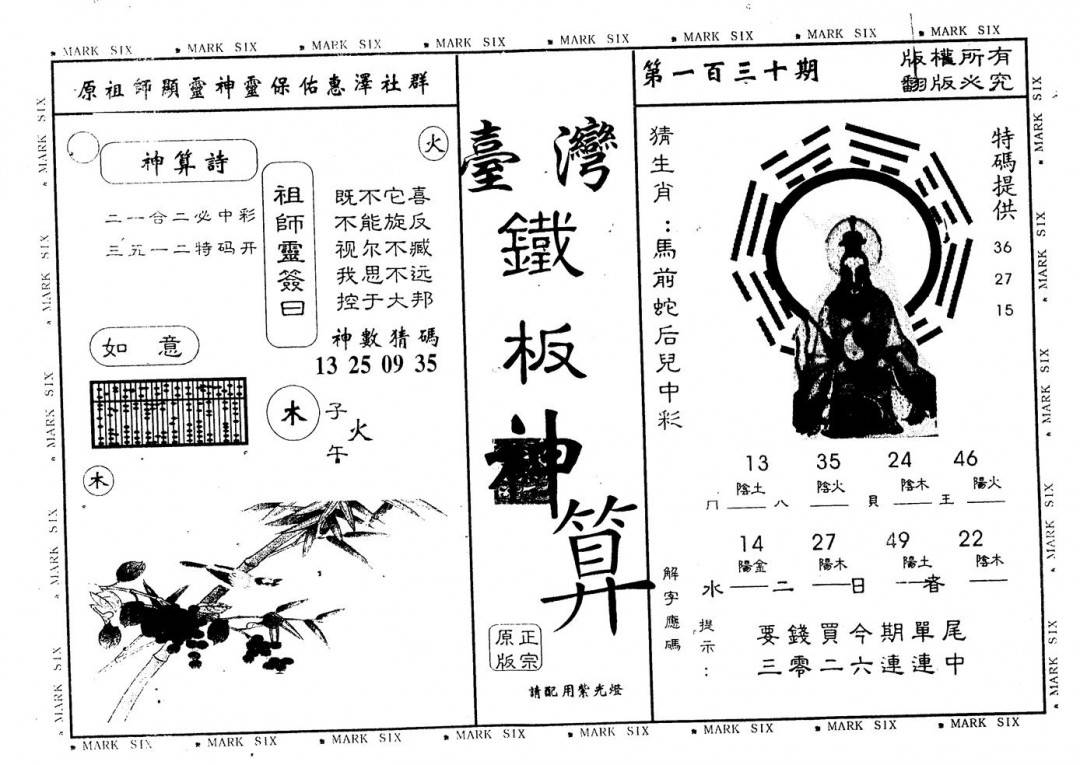 MARK SIX MARK SIX MARK SIX MARK SIX MARK SIX MARK SIX MARK SIX MARK SIX
原祖師顯靈神靈保佑惠澤社群
火
神算詩
二一合二必中彩
三五一二特码开
祖師靈簽曰
既不它喜
不能旋反
视尔不臧
我思不远
控于大邦
神數猜碼
13 25 09 35
如意
木
子
火
午
木
臺灣
鐵
板
神
算
正宗
原版
請配用紫光燈
第一百三十期
版權所有
翻版必究
猜生肖：馬前蛇后兒中彩
特碼提供
36
27
15
13 35 24 46
陰土 陰火 陰木 陽火
冂 八 貝 王
14 27 49 22
陽金 陽木 陽土 陰木
水 二 日 者
解字應碼
提示：
要錢買今期單尾
三零二六連連中
MARK SIX MARK SIX MARK SIX MARK SIX MARK SIX MARK SIX MARK SIX MARK SIX
MARK SIX MARK SIX MARK SIX MARK SIX MARK SIX
MARK SIX MARK SIX MARK SIX MARK SIX MARK SIX